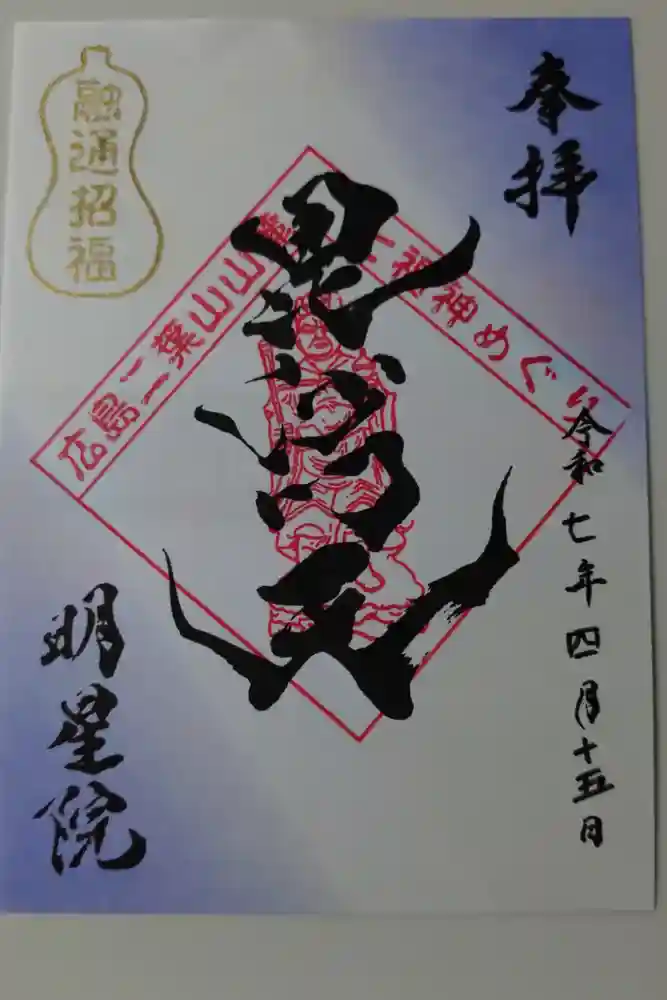 奉拝
令和七年四月十五日
毘沙門天
広島二葉山山麓
七福神めぐり
融通招福
明星院